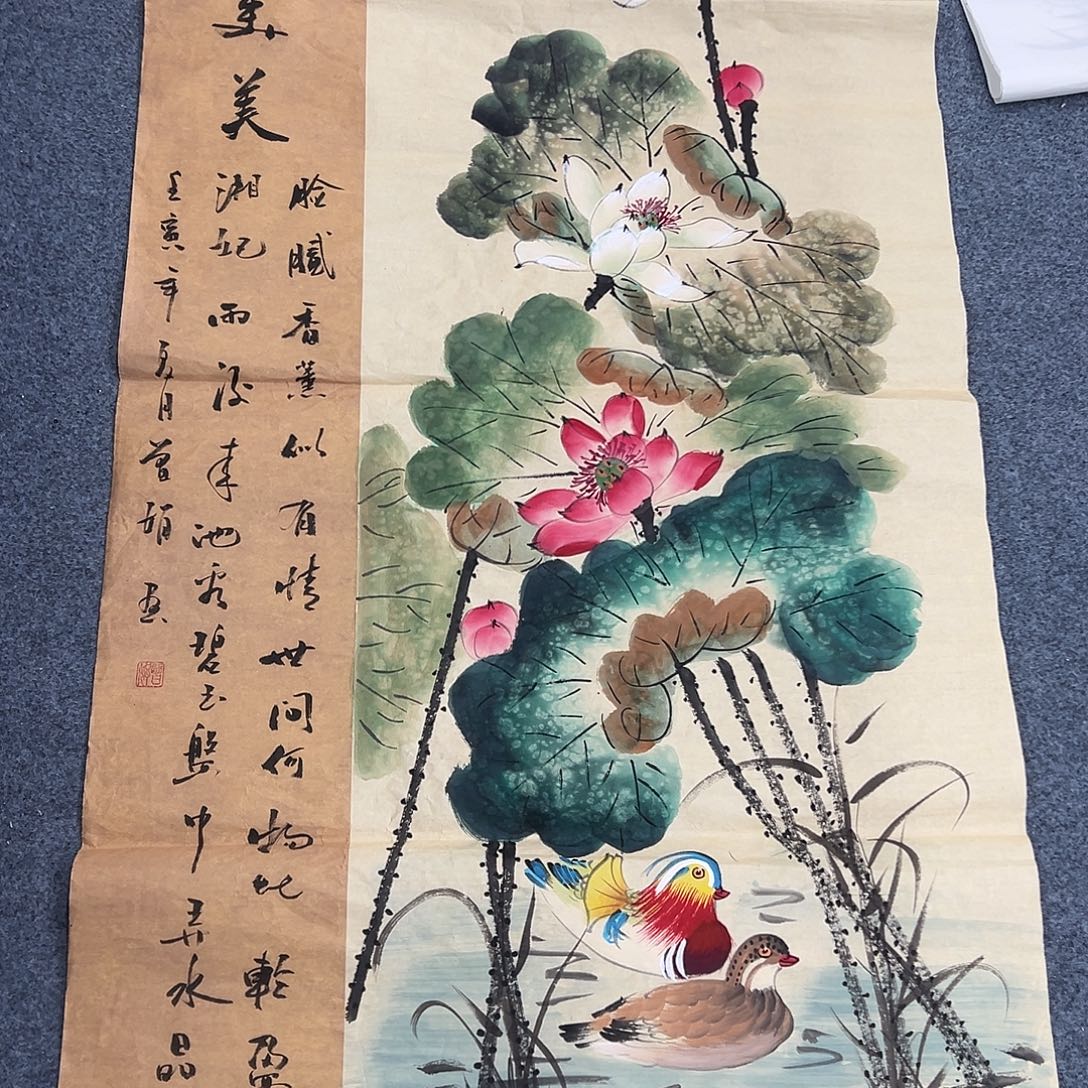 美
脸膩香薰似有情世间何物比輕盈
湘妃雨後来池看碧玉盤中弄水晶
壬寅年夏月曾娟画